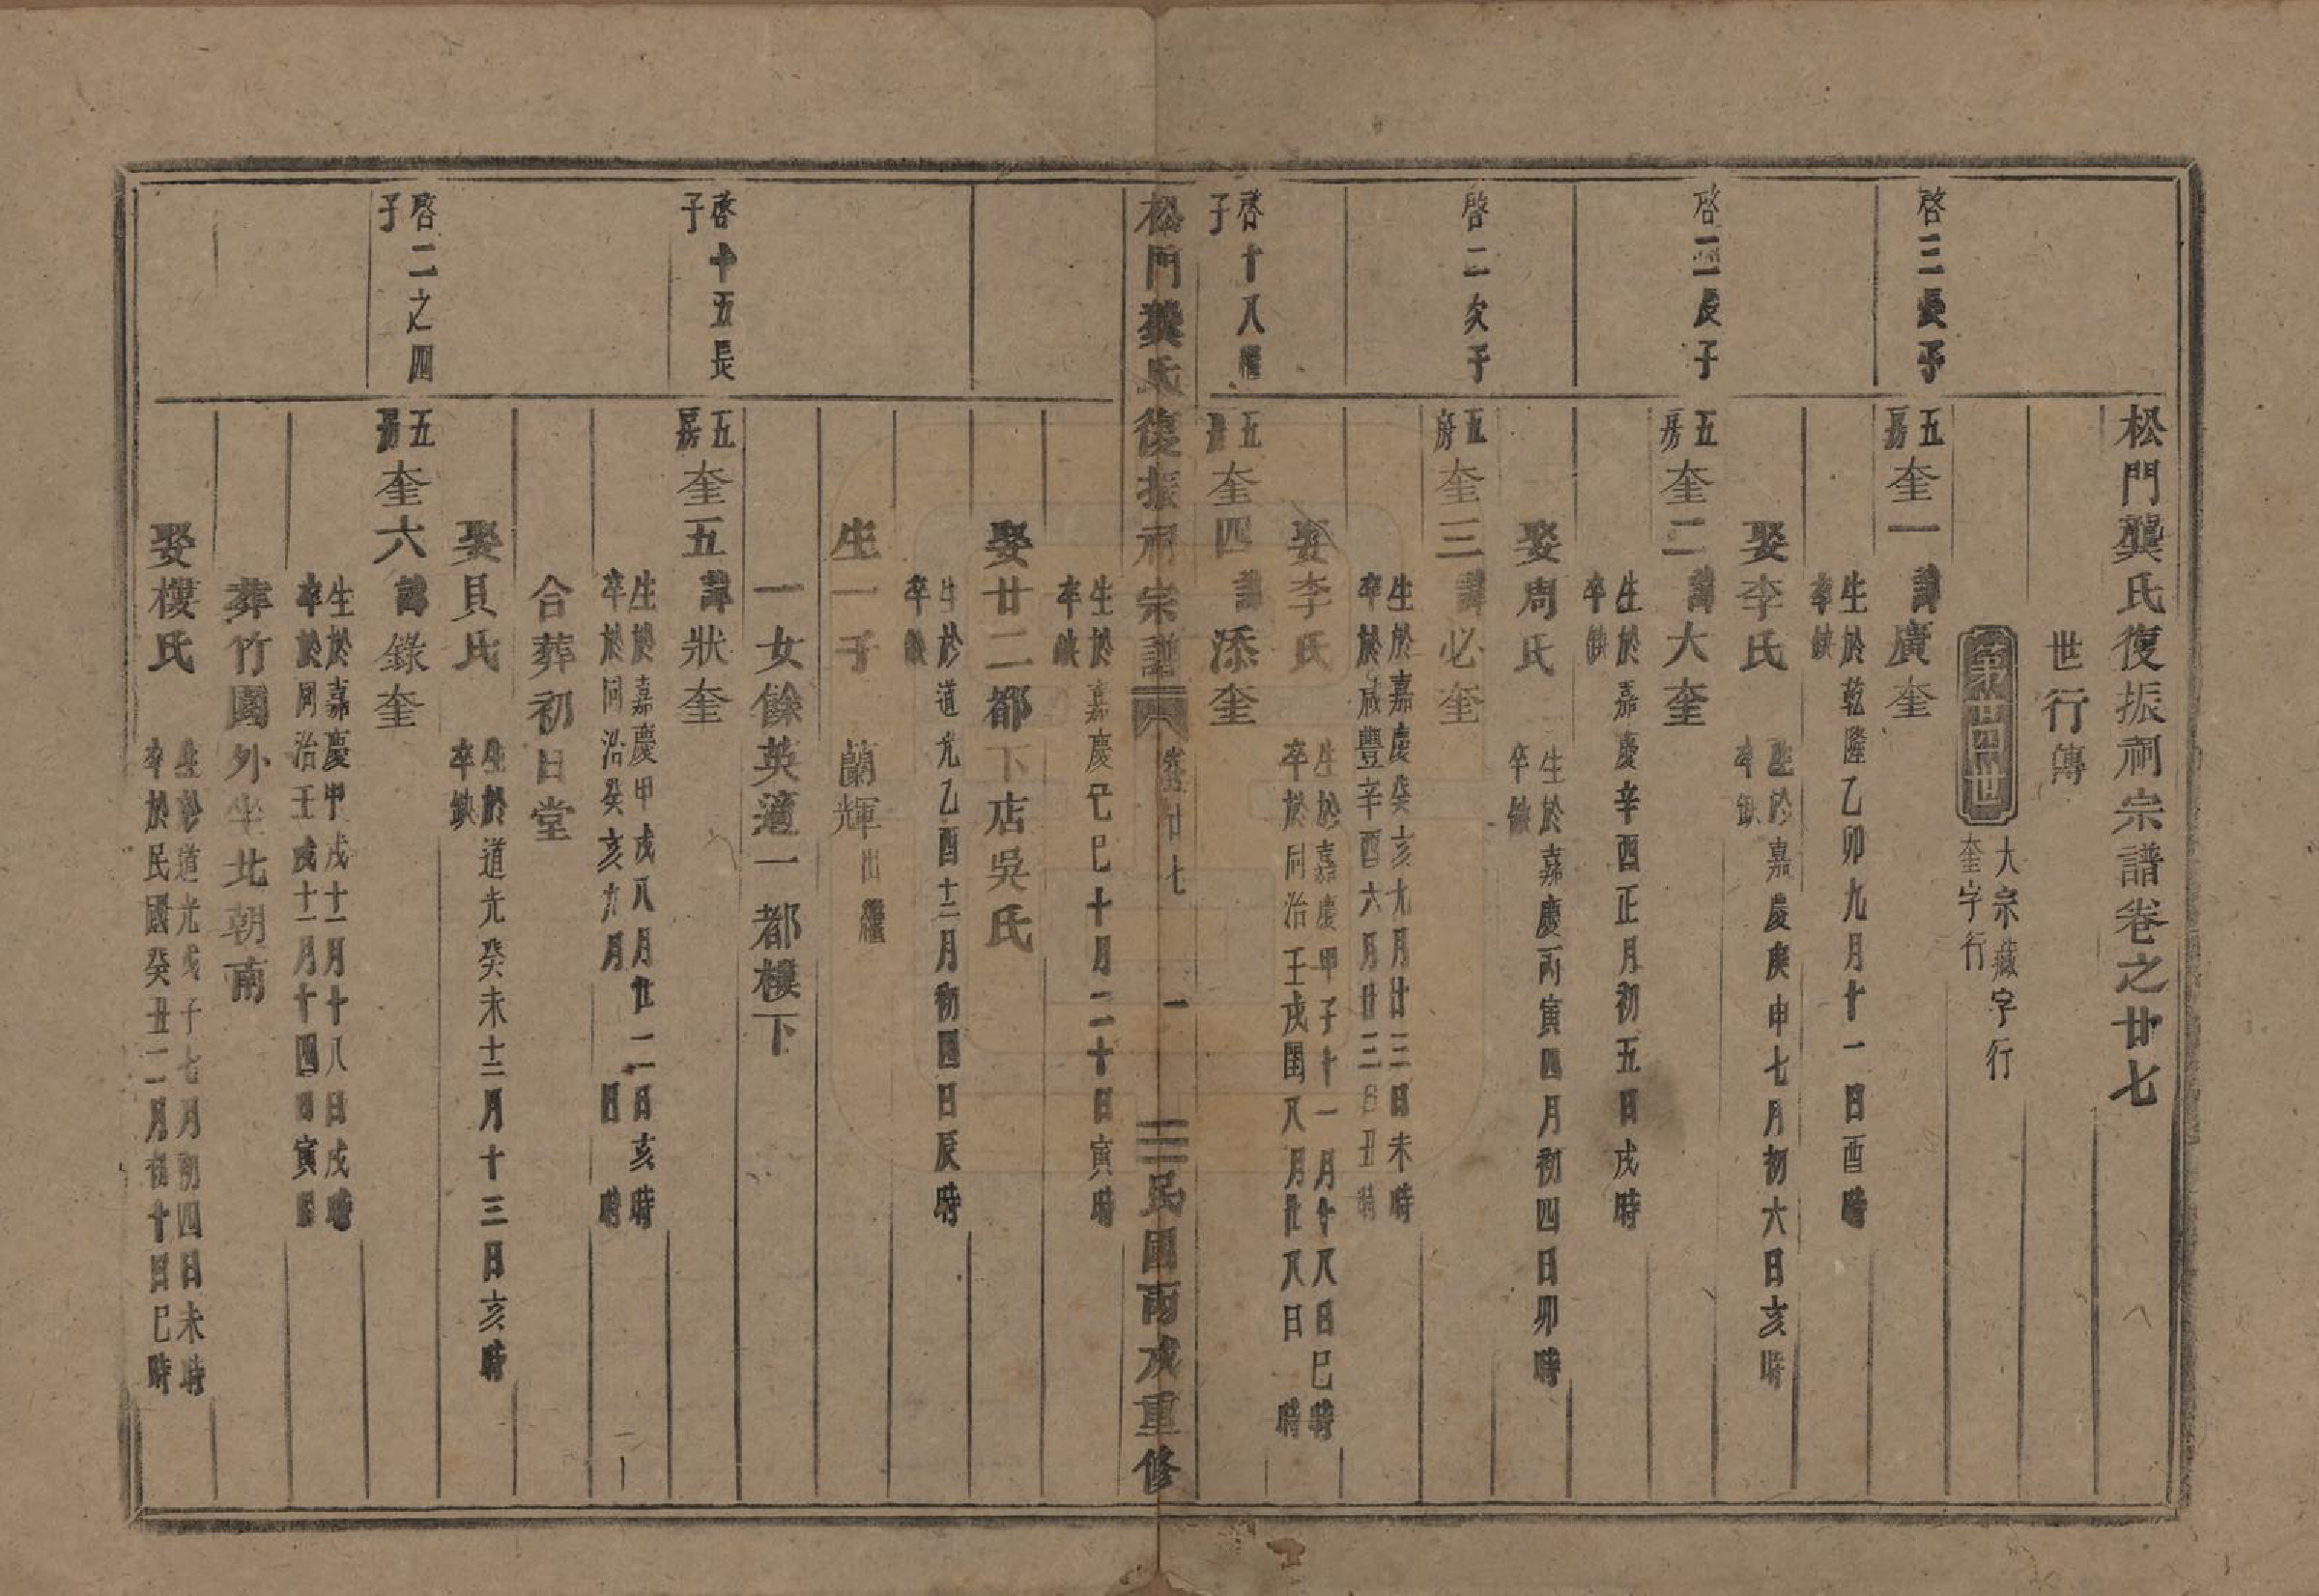 松門龔氏復振祠宗譜卷之廿七
世行傳
第廿四世
大宗藏字行
奎字行
啓三長子
五房奎一諱廣奎
生於乾隆乙卯九月十一日酉時
卒缺
娶李氏
生於嘉慶庚申七月初六日亥時
卒缺
啓二長子
五房奎二諱大奎
生於嘉慶辛酉正月初五日戌時
卒缺
娶周氏
生於嘉慶丙寅四月初四日卯時
卒缺
啓二次子
五房奎三諱必奎
生於嘉慶癸亥九月廿三日未時
卒於咸豐辛酉六月廿三日丑時
娶李氏
生於嘉慶甲子十一月十八日巳時
卒於同治壬戌閏八月廿八日 時
啓十八繼子
五房奎四諱添奎
松門龔氏復振祠宗譜 卷廿七 一 民國丙戌重修
生於嘉慶己巳十月二十日寅時
卒缺
娶廿二都下店吳氏
生於道光乙酉十二月初四日辰時
卒缺
生一子 蘭輝出繼
一女餘英適一都樓下
啓十五長子
五房奎五諱狀奎
生於嘉慶甲戌八月廿二日亥時
卒於同治癸亥九月 日 時
合葬初日堂
娶貝氏
生於道光癸未十二月十三日亥時
卒缺
啓二之四子
五房奎六諱錄奎
生於嘉慶甲戌十一月十八日戌時
卒於同治壬戌十一月十四日寅時
葬竹園外坐北朝南
娶樓氏
生於道光戊子七月初四日未時
卒於民國癸丑二月初十日巳時